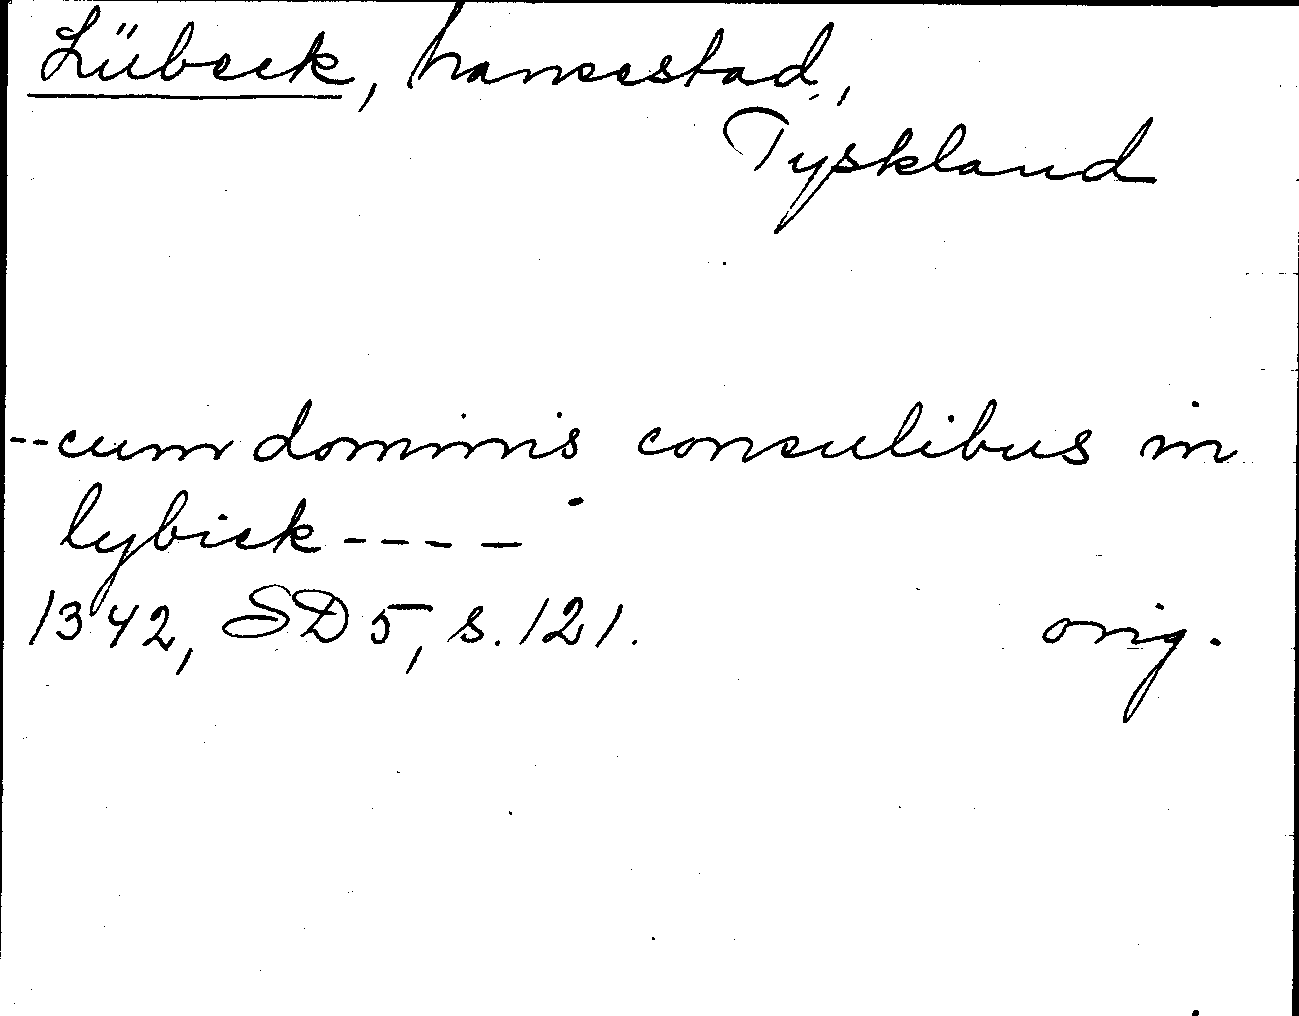 Lübeck, hansestad,
Tyskland
--cum dominis consulibus in
lybick ----
1342, SD5, s. 121. orig.